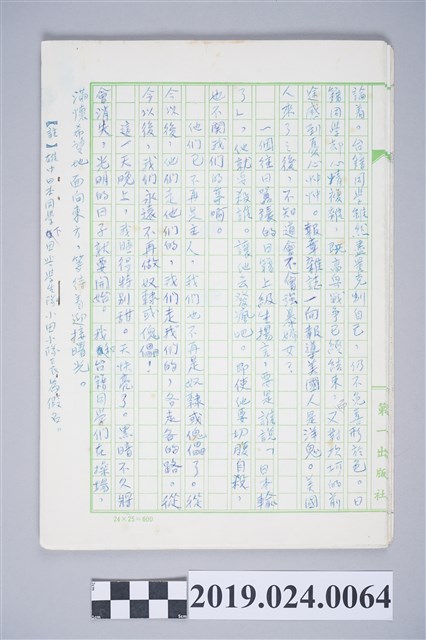 論着。台籍同學雖然盡量克制自己,仍不免喜形於色。日
籍同學卻心情複雜,既高興戰爭已經結束,又對坎坷的前
途感到憂心忡忡。報章雜誌一向報導美國人是洋鬼。美國
人來了之後,不知道會不會強姦婦女?
一個往日囂張的日籍上級生揚言,要是誰說「日本輸
了」,他就要殺誰。讓他去發瘋吧。即使他要切腹自殺,
也不關我們的事啊。
他們已不再是主人,我們也不再是奴隸或傀儡了。從
今以後,他們走他們的,我們走我們的,各走各的路。從
今以後,我們永遠不再做奴隸或傀儡!
這一天晚上,我睡得特別甜。天快亮了。黑暗不久將
會消失,光明的日子就要開始。我和台籍同學們在操場,
滿懷希望地面向東方,等待着迎接曙光。
【註】雄中日本同學
小田小隊長
第一出版社
24×25=600
2019.024.0064